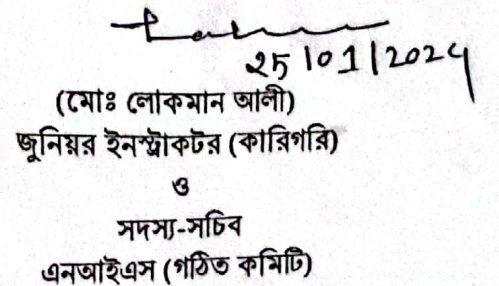 25/01/2024
(মোঃ লোকমান আলী)
জুনিয়র ইনস্ট্রাকটর (কারিগরি)
ও
সদস্য-সচিব
এনআইএস (গঠিত কমিটি)